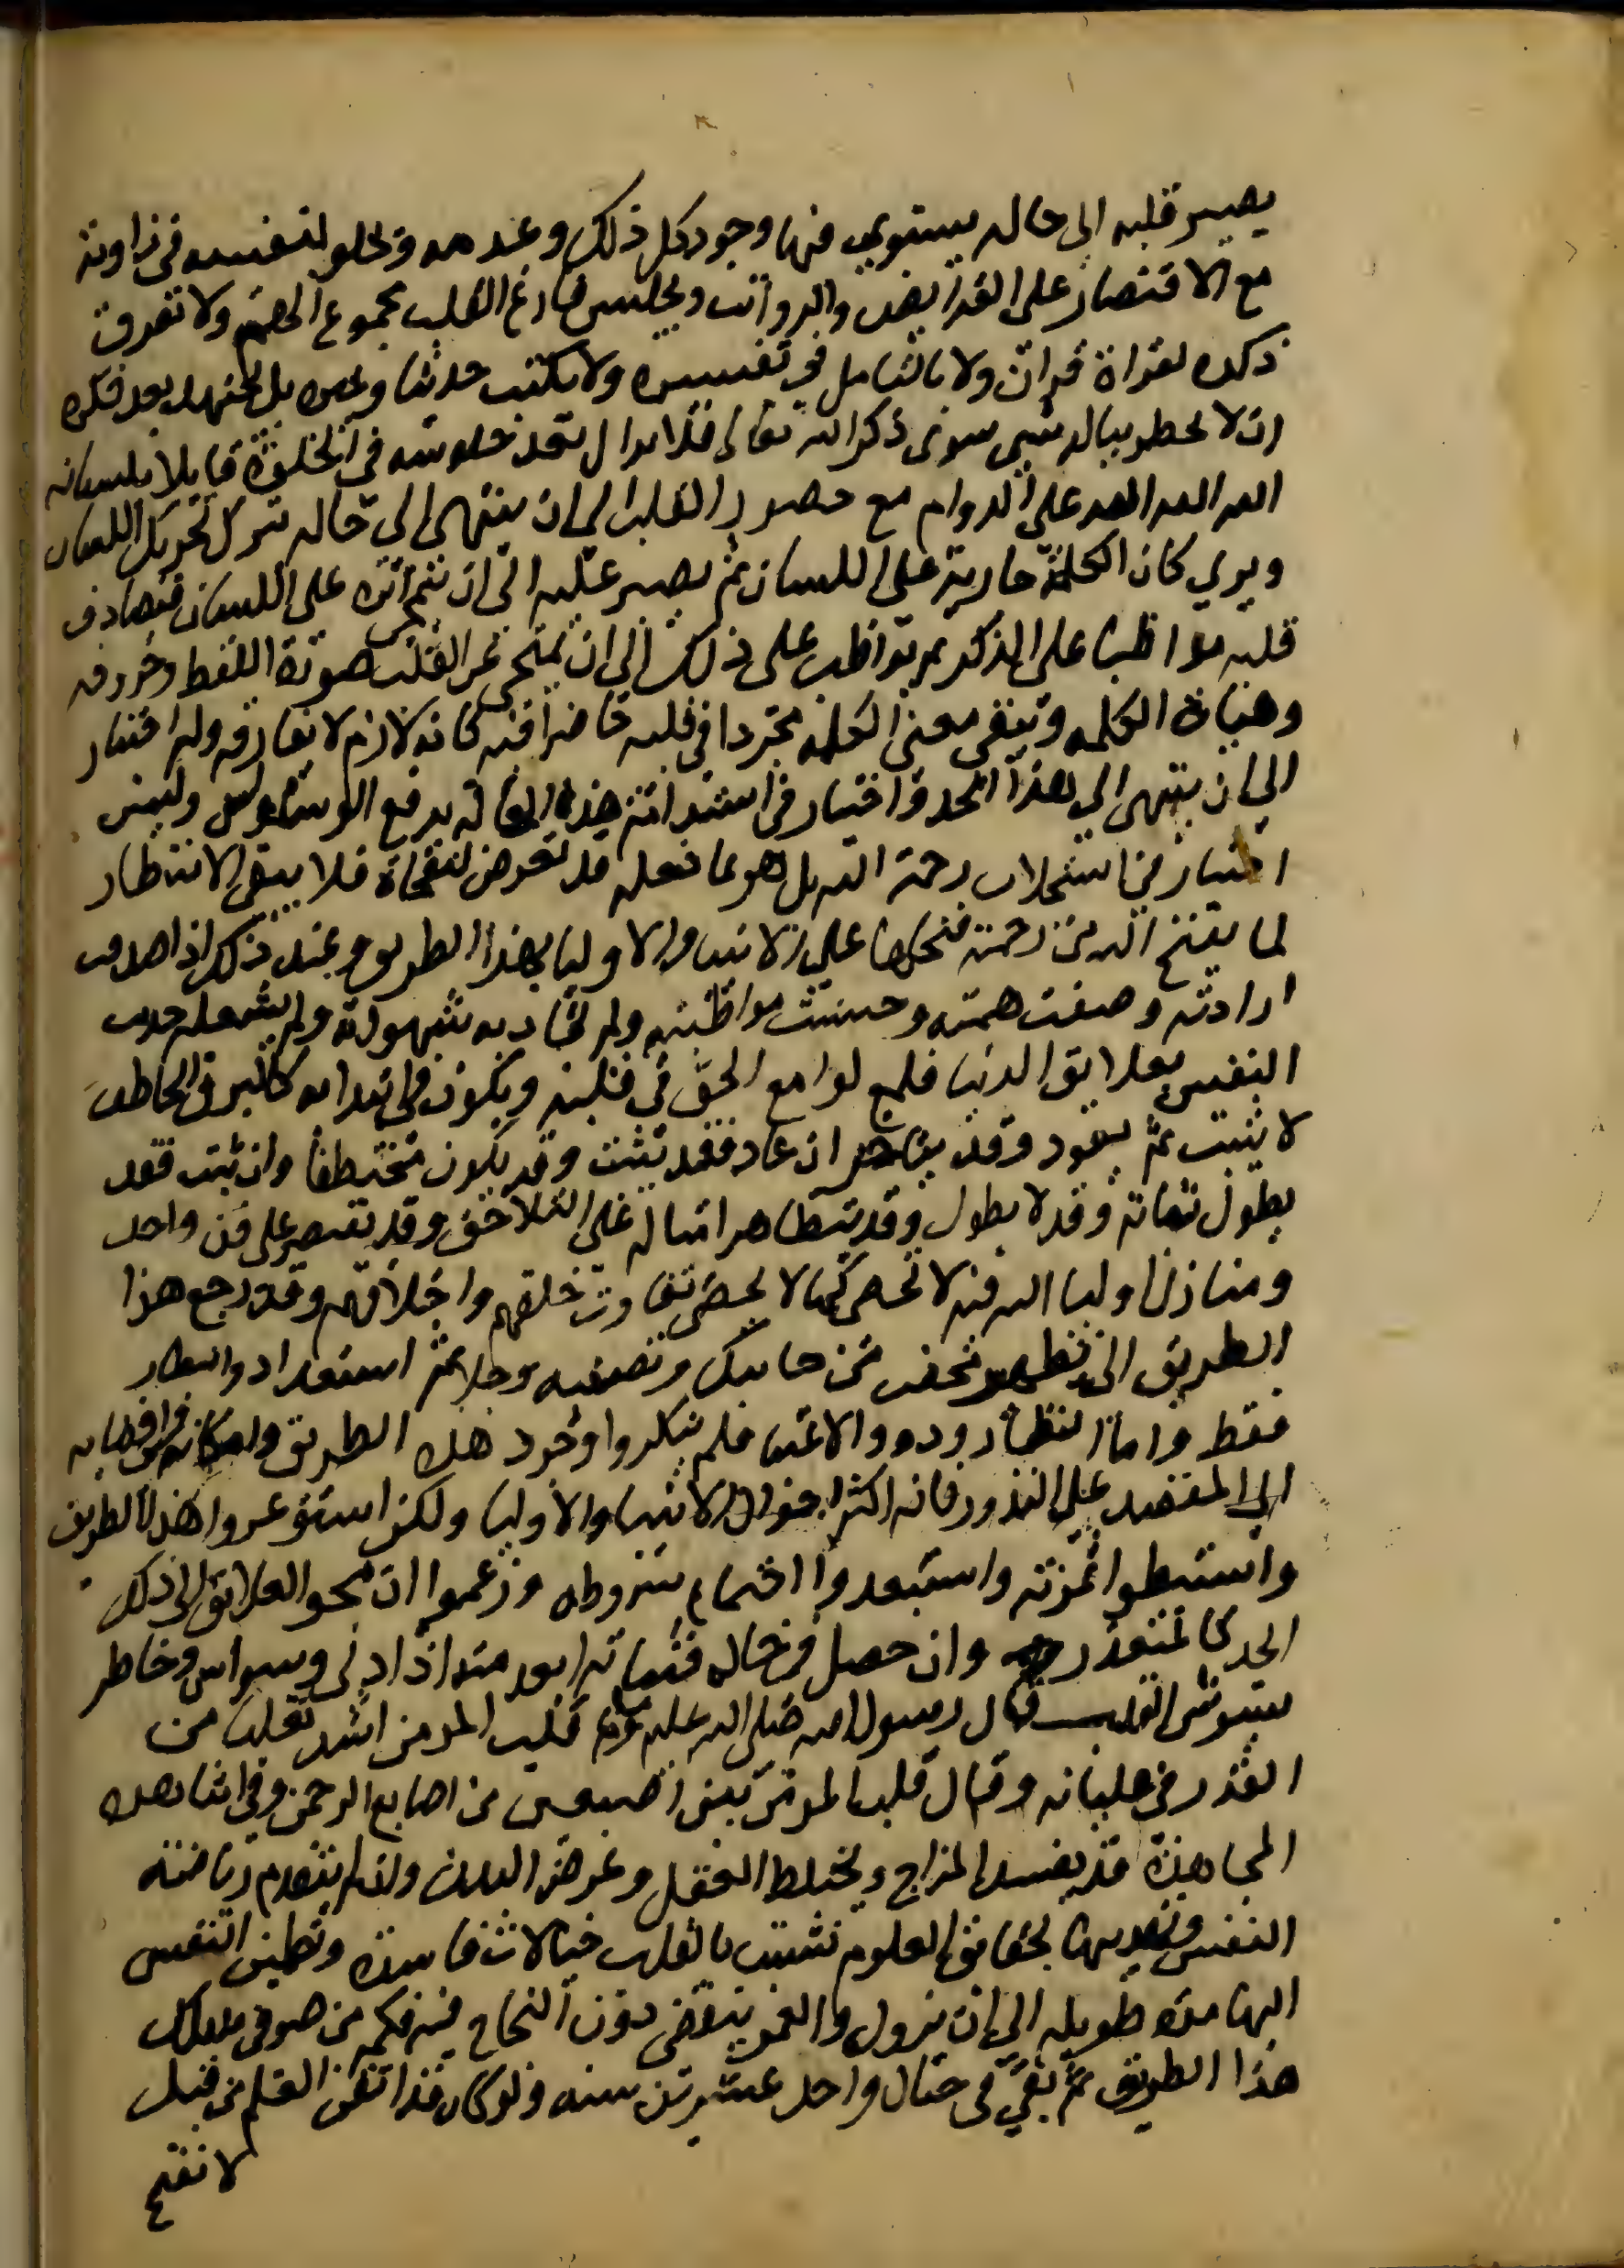 يصير قلبه الى حاله يستوي فيها وجود كل ذلك وعدمه ويخلو لنفسه في زاوية
مع الاقتصار على الفرايض والرواتب ويجلس فارغ القلب مجموع الهم ولا تفرق
فكره لقراة قران ولا بالتامل في تفسيره ولا بكتب حديثا وغيره بل يجتهد بعد فكره
ان لا يخطر بباله شيى سوى ذكر الله تعالى فلا يزال بعد جلوسه في الخلوة قايلا بلسانه
الله الله الله على الدوام مع حضور القلب الى ان ينتهى الى حاله يترك تحريك اللسان
ويري كان الكلمة جارية على اللسان ثم يصير عليه الى ان ينمحى اثره على اللسان فيصادف
قلبه مواظبا على الذكر ثم يواظب على ذلك الى ان يمتحى عن القلب صورة اللفظ وحروفه
وهياة الكلمه ويبقى معنى الكلمه مجردا في قلبه حاضرا فيه كانه لازم لا يفارقه وله اختيار
الى ان ينتهى الى هذا الحد واختيار في استدامة هذه الحالة بدفع الوسواس وليس
اختيار في استجلاب رحمة الله بل هو بما فعله قد تعرض لنفحاة فلا يبقى الا انتظار
لما يفتح الله من رحمة فتحها على الانبيا والاوليا بهذا الطريق وعند ذلك اذا صدقت
ارادته وصفت همته وحسنت مواظبته ولم تجاذبه شهواته ولم يشغله حديث
النفس بعلايق الدنيا فلمع لوامع الحق في قلبه ويكون في ابتدايه كالبرق الخاطف
لا يثبت ثم يعود وقد يتاخر ان عاد فقد يثبت وقد يكون مختطفا وان ثبت فقد
يطول ثباته وقد لا يطول وقد يتظاهر امثاله على التلاحق وقد يقتصر على فن واحد
ومنازل اوليا الله فيه لا تحصى كما لا يحصى تفاوت خلقهم واخلاقهم وقد رجع هذا
الطريق الى تطهير محض من جانبك وتصفيه وجلا ثم استعداد وانتظار
فقط واما النظار وذوو الاعتبار فلم ينكروا وجود هذا الطريق وامكانه وافضايه
الى المقصد على الندور فانه اكثر احوال الانبيا والاوليا ولكن استوعروا هذا الطريق
واستبطوا ثمرته واستبعدوا اجتماع شروطه وزعموا ان محو العلايق الى ذلك
الحد كالمتعذر وان حصل في حاله فثباته ابعد منه اذ ادنى وسواس وخاطر
يشوش القلب قال رسول الله صلى الله عليه وسلم قلب المومن اشد تقلبا من
القدر في غليانه وقال قلب المومن بين اصبعين من اصابع الرحمن وفي اثنا هذه
المجاهدة قد يفسد المزاج ويختلط العقل ويمرض البدن واذا لم يتقدم رياضة
النفس وتهذيبها بحقايق العلوم تشبث بالقلب خيالات فاسدة وتطمين النفس
اليها مدة طويله الى ان يزول والعمر ينقضى دون النجاح فيه فكم من صوفى سلك
هذا الطريق ثم بقي في خيال واحد عشرين سنه ولو كان قد اتقن العلم من قبل
لانفتح